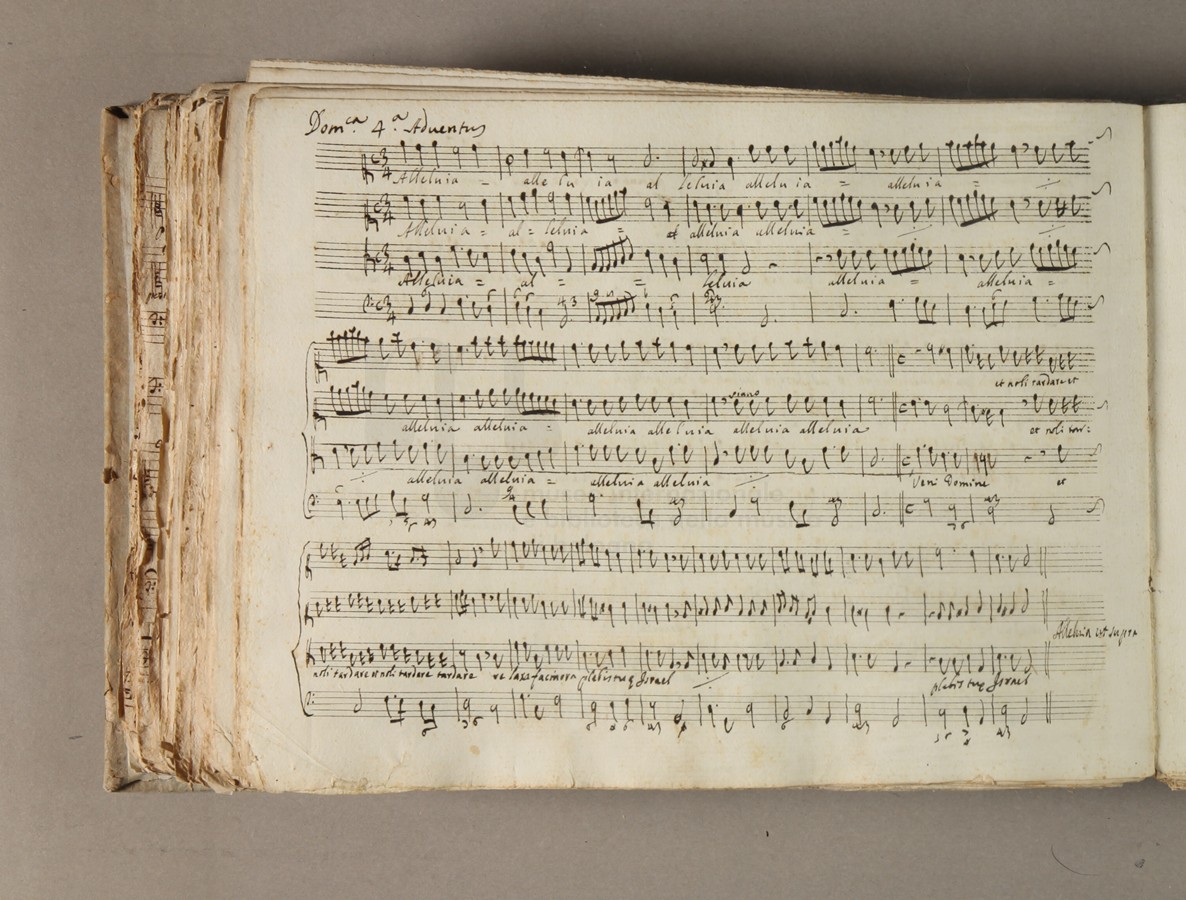 Dom.ca 4.a Adventus
Alleluia = alle lu ia al leluia alleluia = alleluia =
Alleluia = al = leluia = al alleluia alleluia =
Alleluia = al = = leluia alleluia = alleluia =
et noli tardare et
piano
alleluia alleluia = alleluia alleluia alleluia alleluia et noli tar:
alleluia alleluia = alleluia alleluia Veni Domine et
Alleluia ut supra
noli tardare et noli tardare tardare re laxa facinora plebis tuę Israel plebis tuę Israel